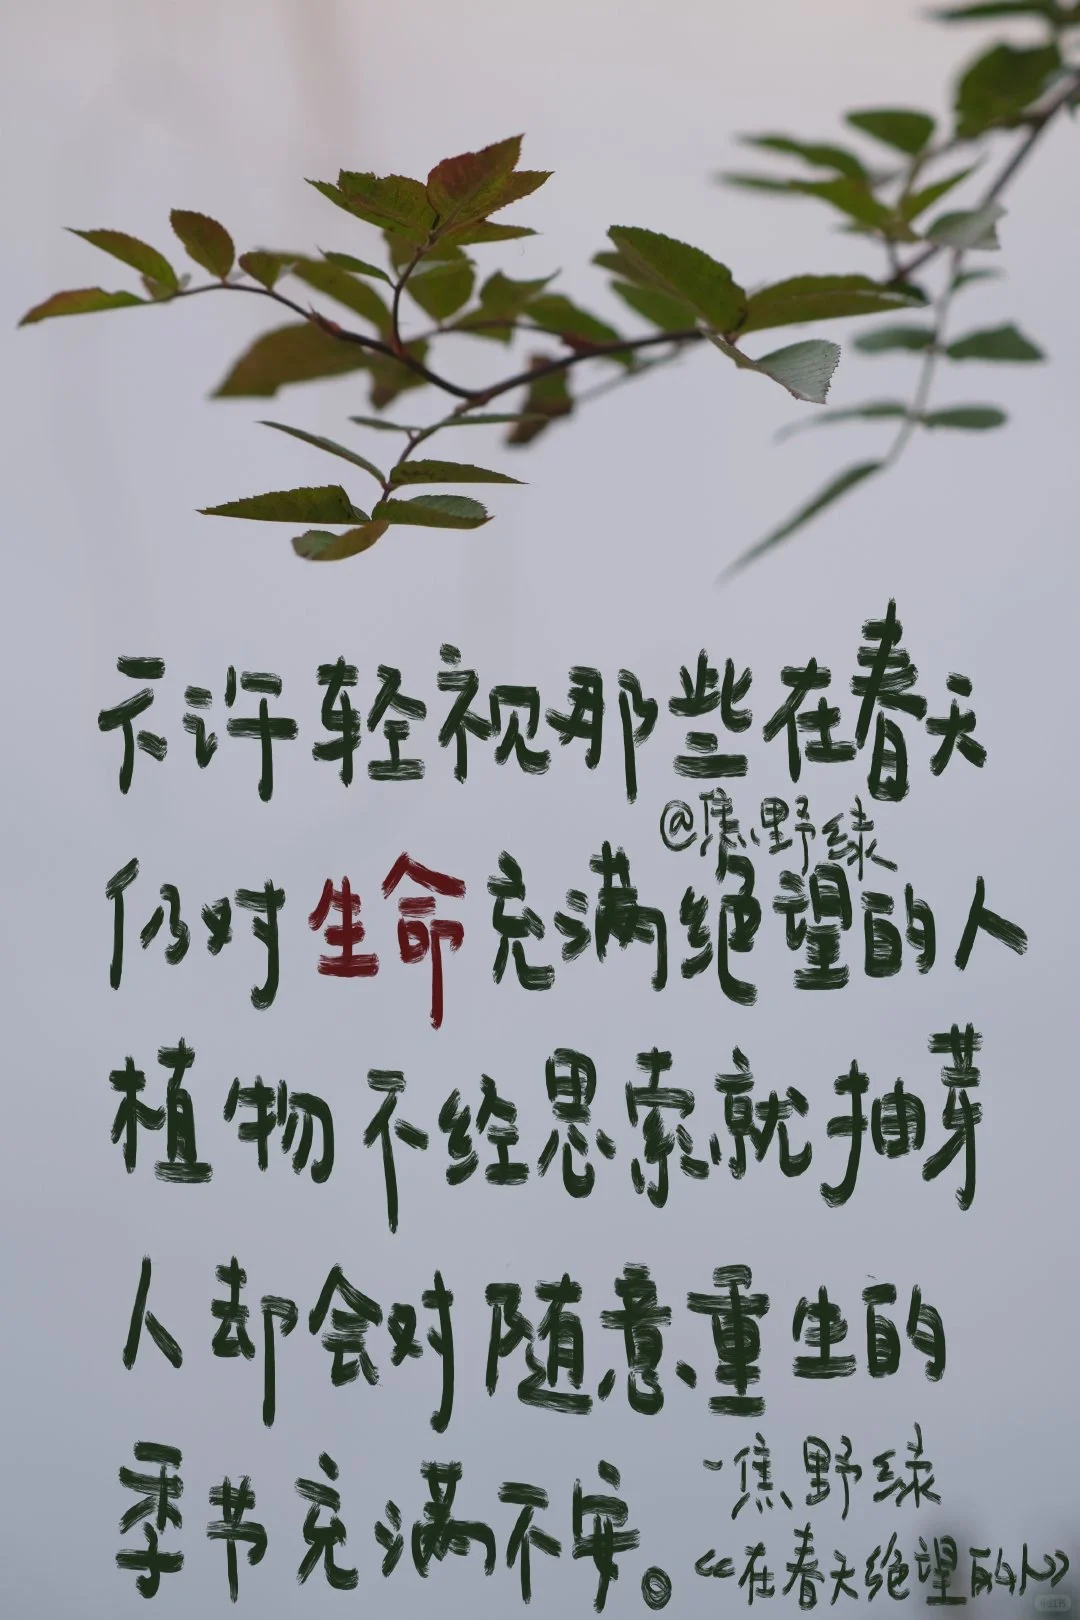 不许轻视那些在春天
@焦野绿
仍对生命充满绝望的人
植物不经思索就抽芽
人却会对随意重生的
季节充满不安。
-焦野绿
《在春天绝望的人》